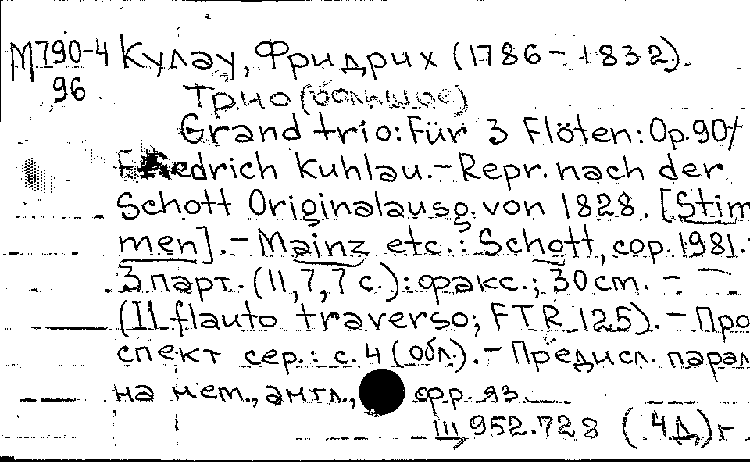 М790-4 Кулау, Фридрих (1786-1832).
96 Трио (большое)
Grand trio: Für 3 Flöten: Op. 90/
Friedrich Kuhlau. - Repr. nach der
Schott Originalausg. von 1828. [Stim
men]. - Mainz etc.: Schott, cop. 1981. -
3 парт. (11, 7, 7 с.): факс.; 30 cm. -
(Il flauto traverso; FTR 125). - Про
спект сер.: с. 4 (обл.). - Предисл. парал
на нем., англ., фр. яз.
952.728 (4Д)г